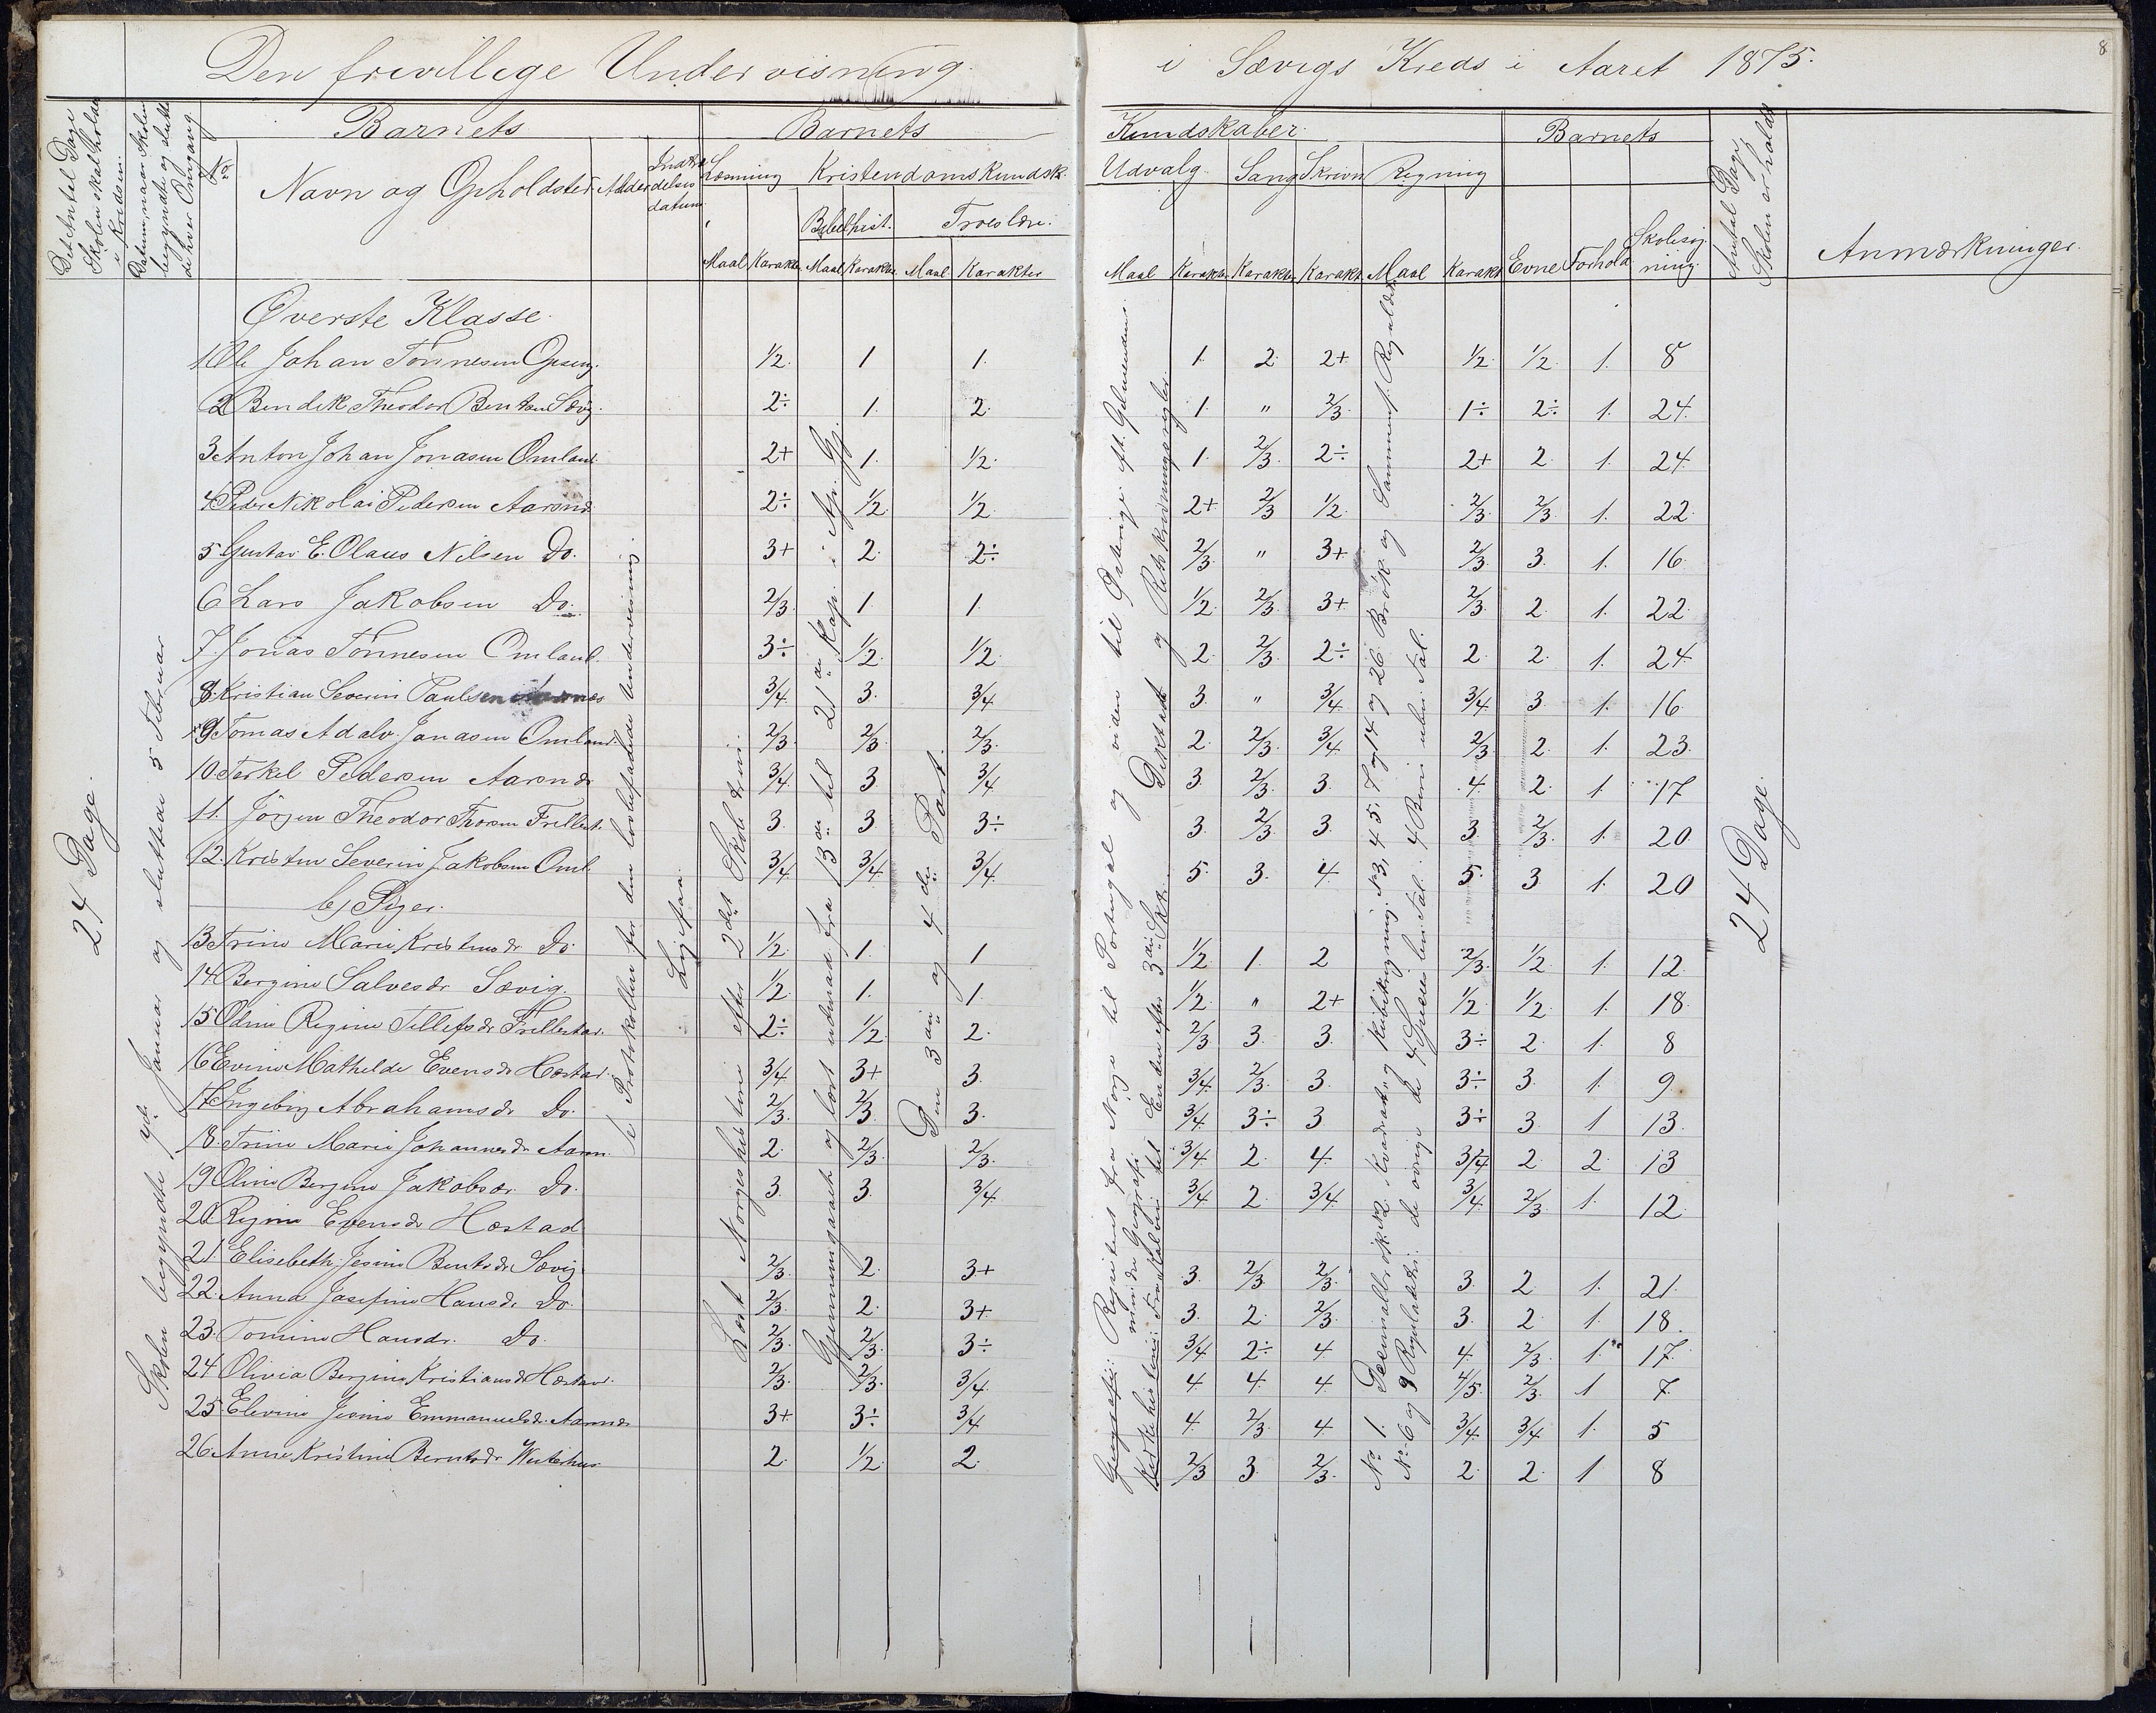 Den frivillige Undervisning i Sævigs Kreds i Aaret 1875.
8
Det Antal Dage Skolen skal holdes i Kredsen.
Datum, naar Skolen begyndte og sluttede hver Omgang
No
Barnets
Navn og Opholdsted. Alder Indtrædelses datum
Barnets Kundskaber
Læsning Kristendomskundsk. Udvalg. Sang Skrivn Regning
Bibelhist. Troeslære.
Maal Karakter Maal Karakter Maal Karakter Maal Karakter Karakter Karakt. Maal Karakt
Barnets
Evne Forhold Skolesøgning.
Antal Dage Skolen er holdt
Anmærkninger.
24 Dage.
Skolen begyndte 7de Januar og sluttede 5 Februar
Se Protokollen for den lovbefalede Undervisning.
Læst Norgeshistorie efter 2det Skoletrin.
Gjennemgaaet og lært udenad fra 13de til 21de Kap. i Ap. Gj.
Den 3die og 4de Part.
24 Dage.
Øverste Klasse.
1. Ole Johan Tønnesen Opseng. 1/2. 1 1. 1. 2. 2+ 1/2. 1/2. 1. 8
2 Bendik Theodor Bentsen Sævig. 2÷ 1. 2. 1. " 2/3. 1÷ 2÷ 1. 24.
3 Anton Johan Jonasen Omland 2+ 1. 1/2. 1. 2/3. 2÷ 2+ 2. 1. 24.
4 Peder Nikolai Pedersen Aarsnes 2÷ 1/2. 1/2. 2+ 2/3 1/2. 2/3. 2/3. 1. 22.
5 Gustav E. Olaus Nilsen Do. 3+ 2. 2÷ 2/3. " 3+ 2/3. 3. 1. 16.
6 Lars Jakobsen Do. 2/3. 1. 1. 1/2. 2/3. 3+ 2/3. 2. 1. 22.
7. Jonas Tønnesen Omland. 3÷ 1/2. 1/2. 2. 2/3. 2÷ 2. 2. 1. 24.
8. Kristian Severin Paulsen 3/4. 3. 3/4. 3. " 3/4. 3/4. 3. 1. 16.
9 Tomas Adalv. Jonasen Omland. 2/3. 2/3. 2/3. 2. 2/3. 3/4. 2/3. 2. 1. 23.
10. Terkel Pedersen Aarsnes 3/4. 3 3/4 3. 2/3. 3. 4. 2. 1. 17
11. Jörgen Theodor Thorsen Frellest. 3. 3. 3÷ 3. 2/3. 3. 3. 2/3. 1. 20.
12. Kristen Severin Jakobsen Oml. 3/4. 3/4. 3/4. 5. 3. 4. 5. 3 1. 20
b) Piger.
13 Trine Marie Kristensdr Do. 1/2. 1. 1 1/2 1. 2 2/3. 1/2. 1. 12.
14 Bergine Salvesdr Sævig. 1/2. 1. 1. 1/2. " 2+ 1/2. 1/2. 1. 18.
15 Odine Regine Tellefsdr Frellestad. 2÷ 1/2. 2. 2/3 3. 3. 3÷ 2. 1. 8
16 Evine Mathilde Evensdr Hæstad. 3/4 3+ 3. 3/4. 2/3. 3. 3÷ 3. 1. 9.
17 Ingebor Abrahamsdr Do. 2/3. 2/3. 3. 3/4. 3÷ 3 3÷ 3. 1 13.
18. Trine Marie Johannesdr Aarsn. 2. 2/3. 2/3. 3/4 2. 4. 3/4 2. 2. 13
19 Oline Bergine Jakobsdr. Do. 3. 3. 3/4 3/4 2. 3/4. 3/4. 2/3. 1. 12.
20 Regine Evensdr Hæstad
21. Elisebeth Jesine Bentsdr Sævig. 2/3. 2. 3+ 3. 2/3. 2/3. 3. 2 1. 21.
22. Anna Josefine Hansdr Do. 2/3. 2. 3+ 3. 2. 2/3. 3. 2. 1. 18.
23. Tomine Hansdr. Do. 2/3. 2/3. 3÷ 3/4 2÷ 4. 4. 2/3. 1. 17.
24 Olivia Bergine Kristiansdr Hæstad. 2/3. 2/3. 3/4. 4. 4. 4 4/5. 2/3. 1 7.
25. Elevine Jesine Emmanuelsdr. Aarsnes 3+ 3÷ 3/4 4. 2/3. 4 3/4. 3/4. 1. 5
26. Anne Kristine Berntsdr Westerhus 2. 1/2. 2. 2/3 3. 2/3. 2. 2. 1 8